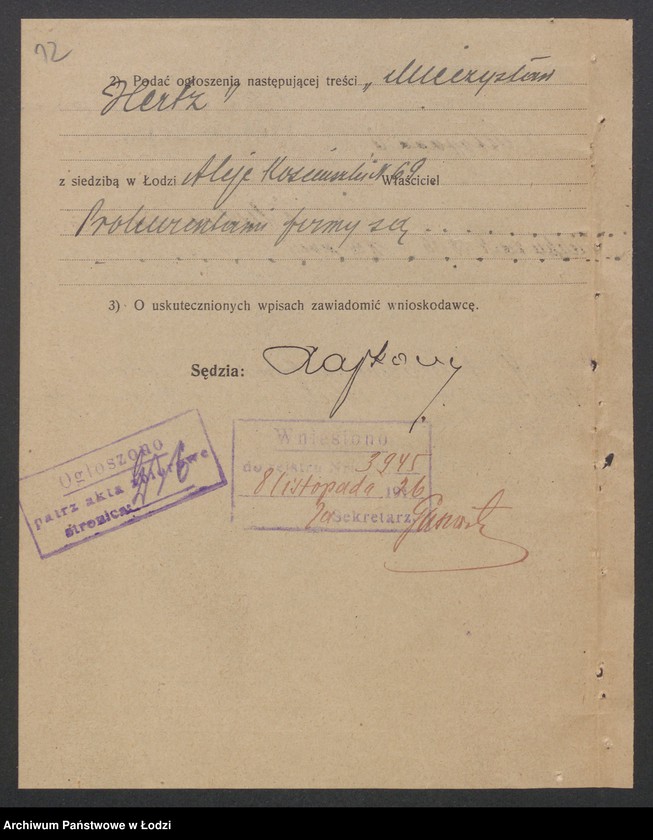 12
2) Podać ogłoszenia następującej treści „Mieczysław
Hertz"
z siedzibą w Łodzi Aleje Kościuszki N 69 Właściciel
Prokurentami firmy są
3) O uskutecznionych wpisach zawiadomić wnioskodawcę.
Sędzia:
Ogłoszono
patrz akta zbiorowe
stronica:
Wniesiono
do rejestru Nr. 3945
8 listopada 1926
Za Sekretarz
Archiwum Państwowe w Łodzi